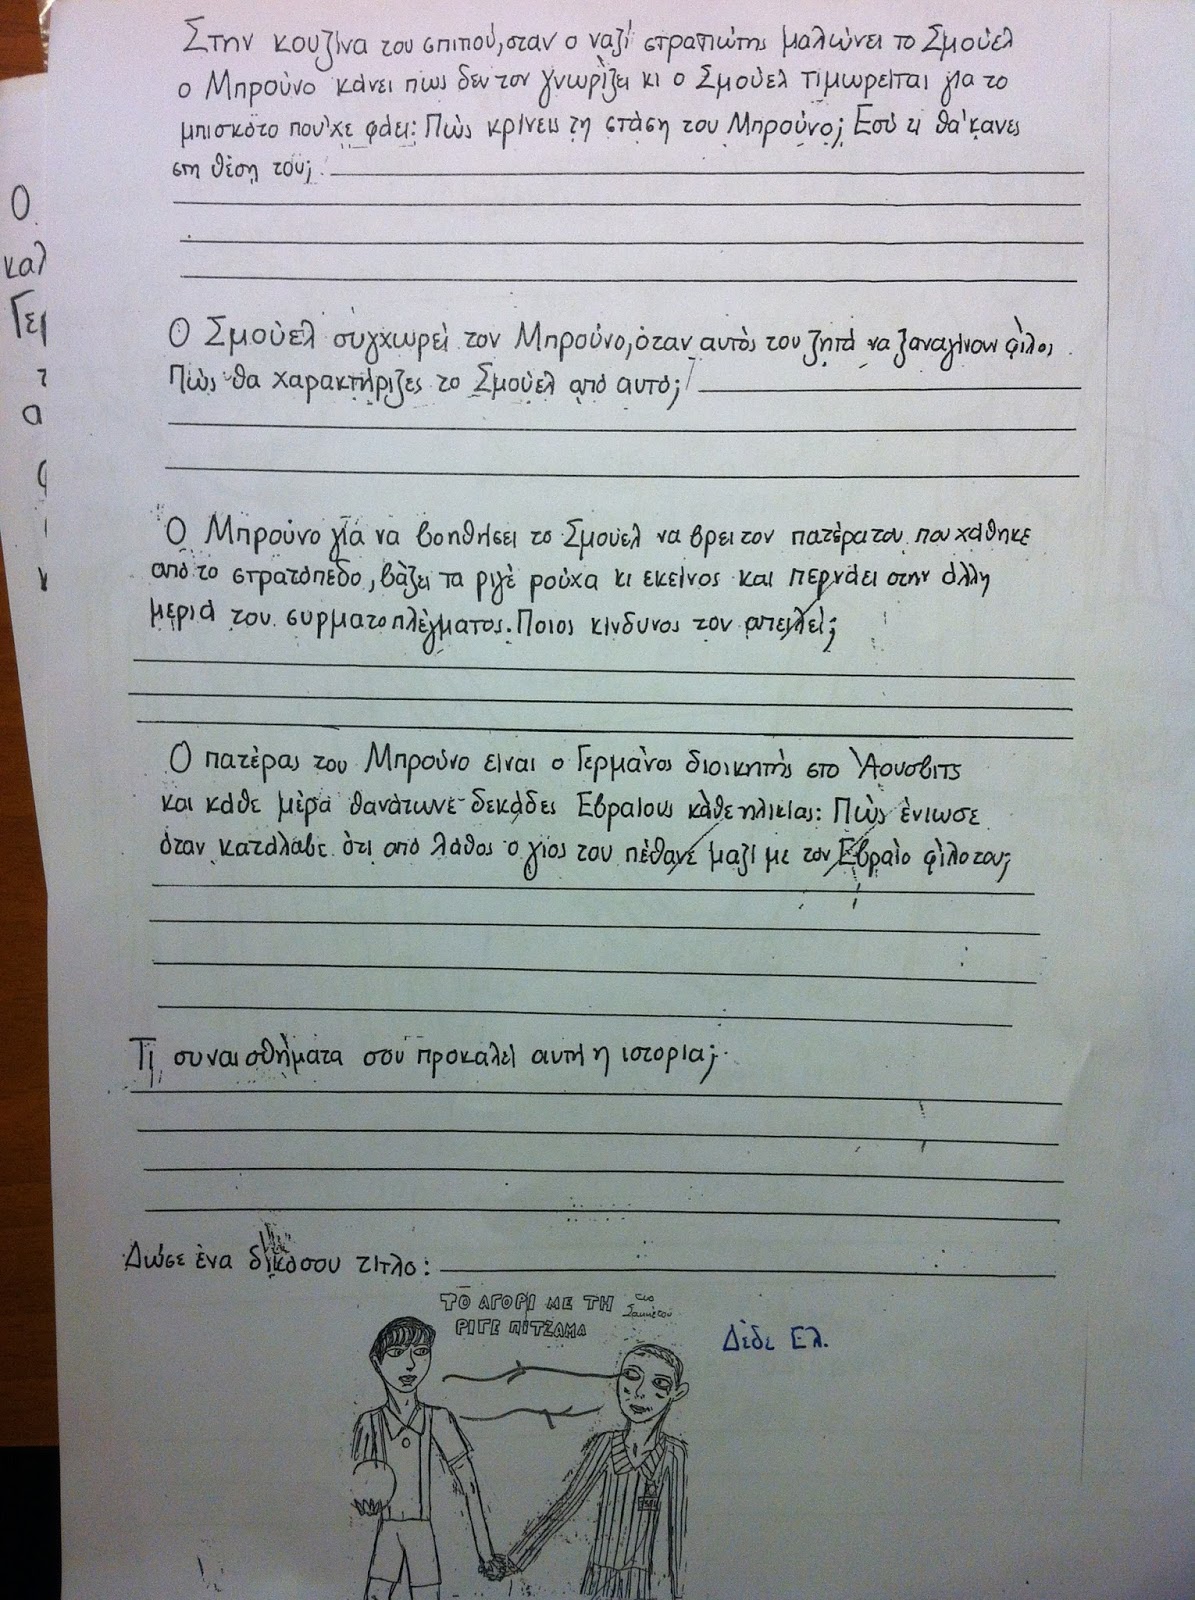 Στην κουζίνα του σπιτιού, όταν ο ναζί στρατιώτης μαλώνει το Σμούελ
ο Μπρούνο κάνει πως δεν τον γνωρίζει κι ο Σμούελ τιμωρείται για το
μπισκότο που'χε φάει: Πώς κρίνεις τη στάση του Μπρούνο; Εσύ τι θα'κανες
στη θέση του;
Ο
καλ
Γερ
τ
α
φ
Ο Σμούελ συγχωρεί τον Μπρούνο, όταν αυτός του ζητά να ξαναγίνουν φίλοι
Πώς θα χαρακτήριζες το Σμούελ από αυτό;
Ο Μπρούνο για να βοηθήσει το Σμούελ να βρει τον πατέρα του που χάθηκε
από το στρατόπεδο, βάζει τα ριγέ ρούχα κι εκείνος και περνάει στην άλλη
μεριά του συρματοπλέγματος. Ποιος κίνδυνος τον απειλεί;
Ο πατέρας του Μπρούνο είναι ο Γερμανός διοικητής στο Άουσβιτς
και κάθε μέρα θανάτωνε δεκάδες Εβραίους κάθε ηλικίας: Πώς ένιωσε
όταν κατάλαβε ότι από λάθος ο γιος του πέθανε μαζί με τον Εβραίο φίλο του;
Τι συναισθήματα σου προκαλεί αυτή η ιστορία;
Δώσε ένα δικό σου τίτλο:
ΤΟ ΑΓΟΡΙ ΜΕ ΤΗ
ΡΙΓΕ ΠΙΤΖΑΜΑ
Δέδε Ελ.